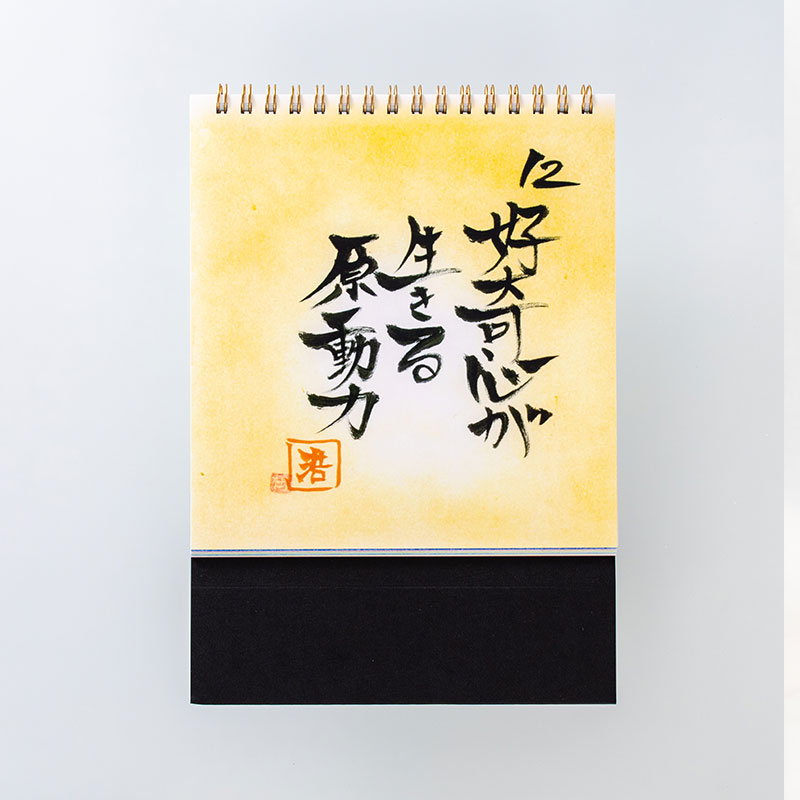 12
好奇心が
生きる
原動力